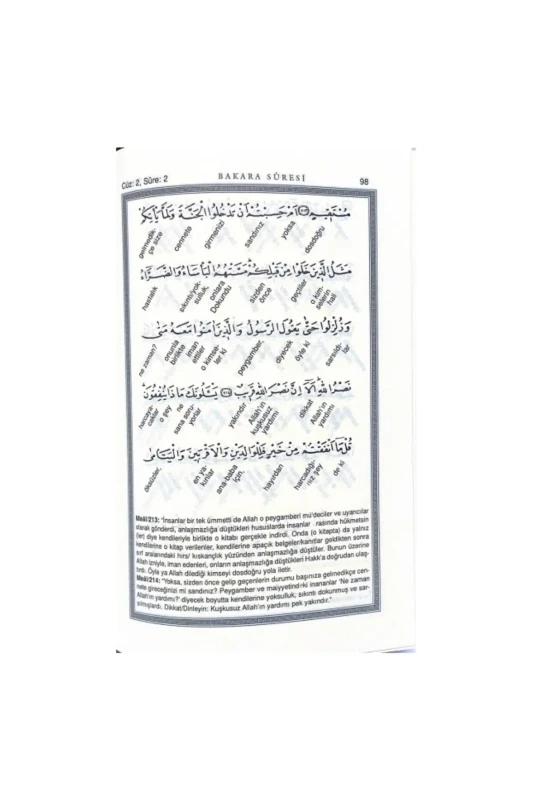 Cüz: 2, Sûre: 2 BAKARA SÛRESİ 98
مُسْتَقِيمٍ ﴿٢١٣﴾ اَمْ حَسِبْتُمْ اَنْ تَدْخُلُوا الْجَنَّةَ وَلَمَّا يَأْتِكُمْ
dosdoğru yoksa sandınız girmenizi cennete gelmedikçe size
مَثَلُ الَّذِينَ خَلَوْا مِنْ قَبْلِكُمْ مَسَّتْهُمُ الْبَأْسَاءُ وَالضَّرَّاءُ
o kimselerin hali geçtiler sizden önce onlara Dokundu sıkıntı/yoksulluk, hastalık
وَزُلْزِلُوا حَتَّى يَقُولَ الرَّسُولُ وَالَّذِينَ اٰمَنُوا مَعَهُ مَتٰى
sarsıldılar öyle ki diyecek peygamber, o kimseler ki iman ettiler onunla birlikte ne zaman?
نَصْرُ اللّٰهِ اَلَا اِنَّ نَصْرَ اللّٰهِ قَرِيبٌ ﴿٢١٤﴾ يَسْـَٔلُونَكَ مَاذَا يُنْفِقُونَ
Allah'ın yardımı dikkat Allah'ın kuşkusuz yardımı yakındır sana soruyorlar ne o şey harcayacaklar
قُلْ مَا اَنْفَقْتُمْ مِنْ خَيْرٍ فَلِلْوَالِدَيْنِ وَالْاَقْرَبِينَ وَالْيَتَامٰى
de ki harcadığınız şey hayırdan ana-baba için, en yakınlar öksüzler,
Meâl/213: "İnsanlar bir tek ümmetti de Allah o peygamberi mü'deciler ve uyarıcılar
olarak gönderdi, anlaşmazlığa düştükleri hususlarda insanlar rasında hükmetsin
(ler) diye kendileriyle birlikte o kitabı gerçekle indirdi. Onda (o kitapta) da yalnız
kendilerine o kitap verilenler, kendilerine apaçık belgeler/kanıtlar geldikten sonra
sırf aralarındaki hırs/ kıskançlık yüzünden anlaşmazlığa düştüler. Bunun üzerine
Allah izniyle, iman edenleri, onların anlaşmazlığa düştükleri Hakk'a doğrudan ulaş-
tırdı. Öyle ya Allah dilediği kimseyi dosdoğru yola iletir.
Meâl/214: "Yoksa, sizden önce gelip geçenlerin durumu başınıza gelmedikçe cen-
nete gireceğinizi mi sandınız? Peygamber ve maiyyetindeki inananlar 'Ne zaman
Allah'ın yardımı?' diyecek boyutta kendilerine yoksulluk, sıkıntı dokunmuş ve sar-
sılmışlardı. Dikkat/Dinleyin: Kuşkusuz Allah'ın yardımı pek yakındır."